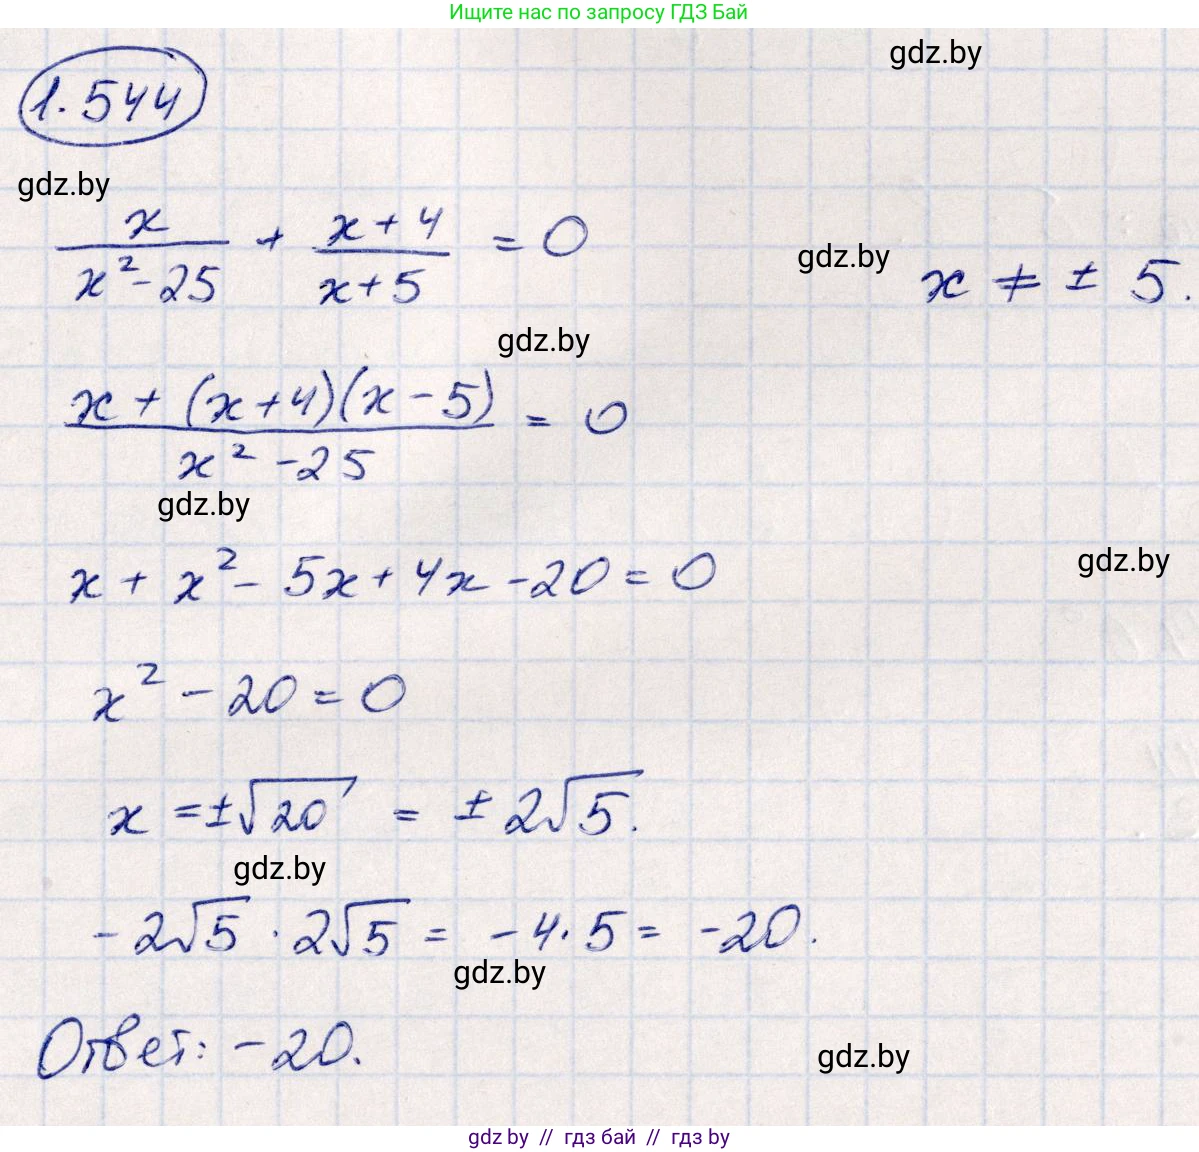 Ищите нас по запросу ГДЗ Бай
gdz.by
1.544
gdz.by
x/(x²-25) + (x+4)/(x+5) = 0
gdz.by
x ≠ ± 5.
gdz.by
(x + (x+4)(x-5))/(x²-25) = 0
gdz.by
x + x² - 5x + 4x - 20 = 0
gdz.by
x² - 20 = 0
x = ±√20 = ± 2√5.
gdz.by
- 2√5 · 2√5 = - 4 · 5 = - 20.
gdz.by
Ответ: - 20.
gdz.by
gdz by // гдз бай // гдз by